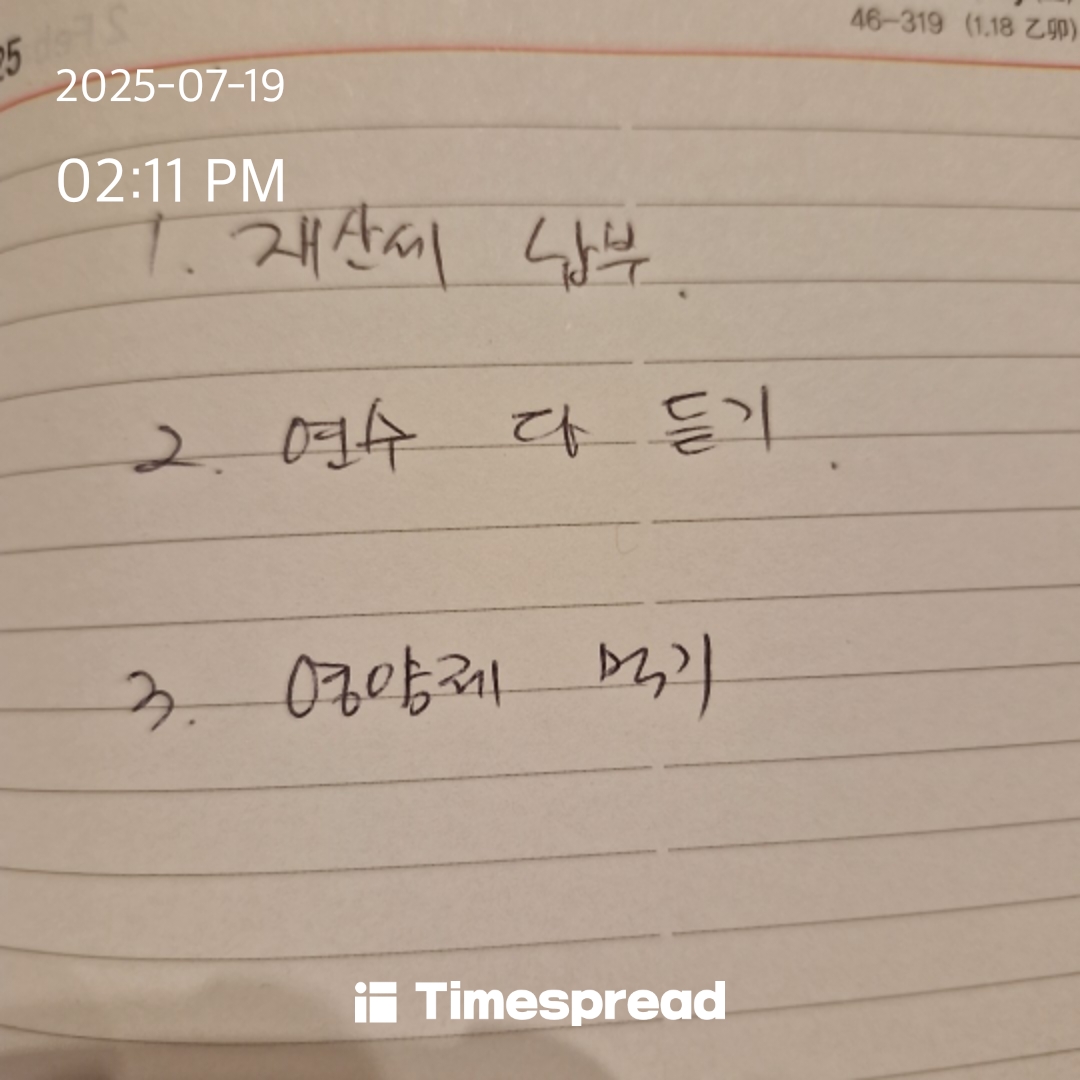 46-319 (1.18 乙卯)
25
2025-07-19
02:11 PM
1. 재산세 납부.
2. 연수 다 듣기.
3. 영양제 먹기
Timespread